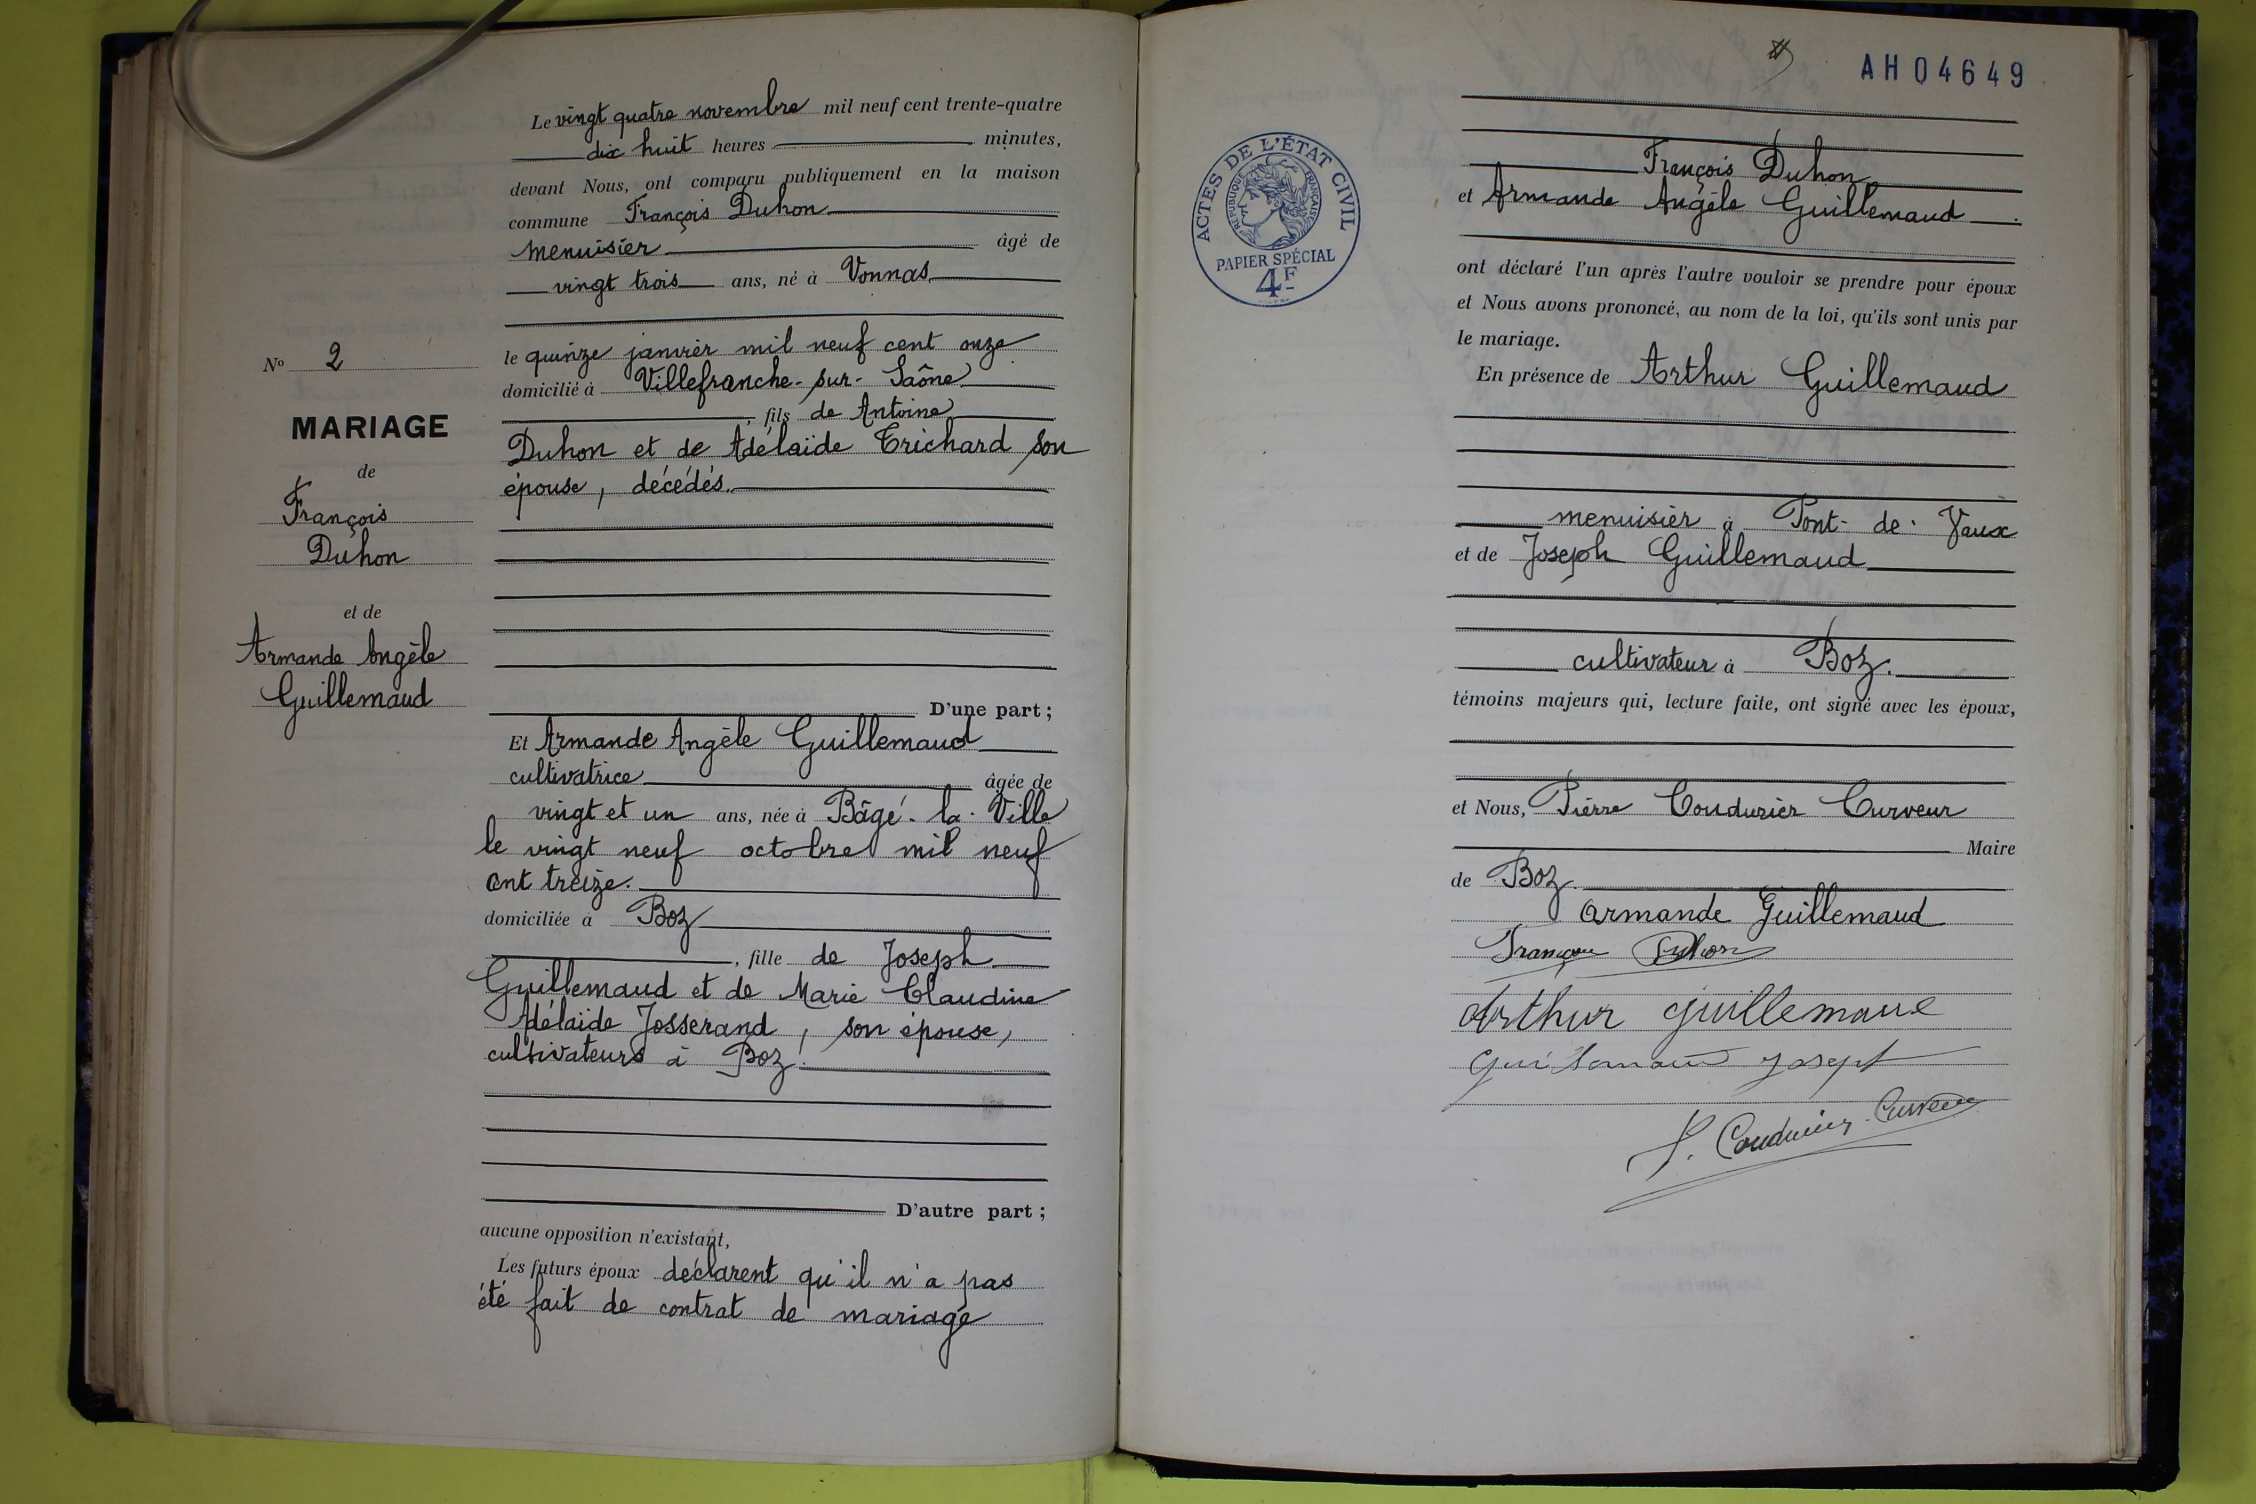 Le vingt quatre novembre mil neuf cent trente-quatre
dix huit heures minutes,
devant Nous, ont comparu publiquement en la maison
commune François Duhon
menuisier âgé de
vingt trois ans, né à Vonnas
le quinze janvier mil neuf cent onze
domicilié à Villefranche-sur-Saône
, fils de Antoine
Duhon et de Adélaïde Trichard son
épouse, décédés.
No 2
MARIAGE
de
François
Duhon
et de
Armande Angèle
Guillemaud
D'une part ;
Et Armande Angèle Guillemaud
cultivatrice âgée de
vingt et un ans, née à Bâgé-la-Ville
le vingt neuf octobre mil neuf
cent treize.
domiciliée à Boz
, fille de Joseph
Guillemaud et de Marie Claudine
Adélaïde Josserand, son épouse,
cultivateurs à Boz.
D'autre part ;
aucune opposition n'existant,
Les futurs époux déclarent qu'il n'a pas
été fait de contrat de mariage
AH04649
ACTES DE L'ÉTAT CIVIL
RÉPUBLIQUE FRANÇAISE
PAPIER SPÉCIAL
4F
François Duhon
et Armande Angèle Guillemaud
ont déclaré l'un après l'autre vouloir se prendre pour époux
et Nous avons prononcé, au nom de la loi, qu'ils sont unis par
le mariage.
En présence de Arthur Guillemaud
menuisier à Pont-de-Vaux
et de Joseph Guillemaud
cultivateur à Boz.
témoins majeurs qui, lecture faite, ont signé avec les époux,
et Nous, Pierre Condurier Curveur
Maire
de Boz.
Armande Guillemaud
François Duhon
Arthur Guillemaud
Guillemaud Joseph
P. Condurier-Curveur